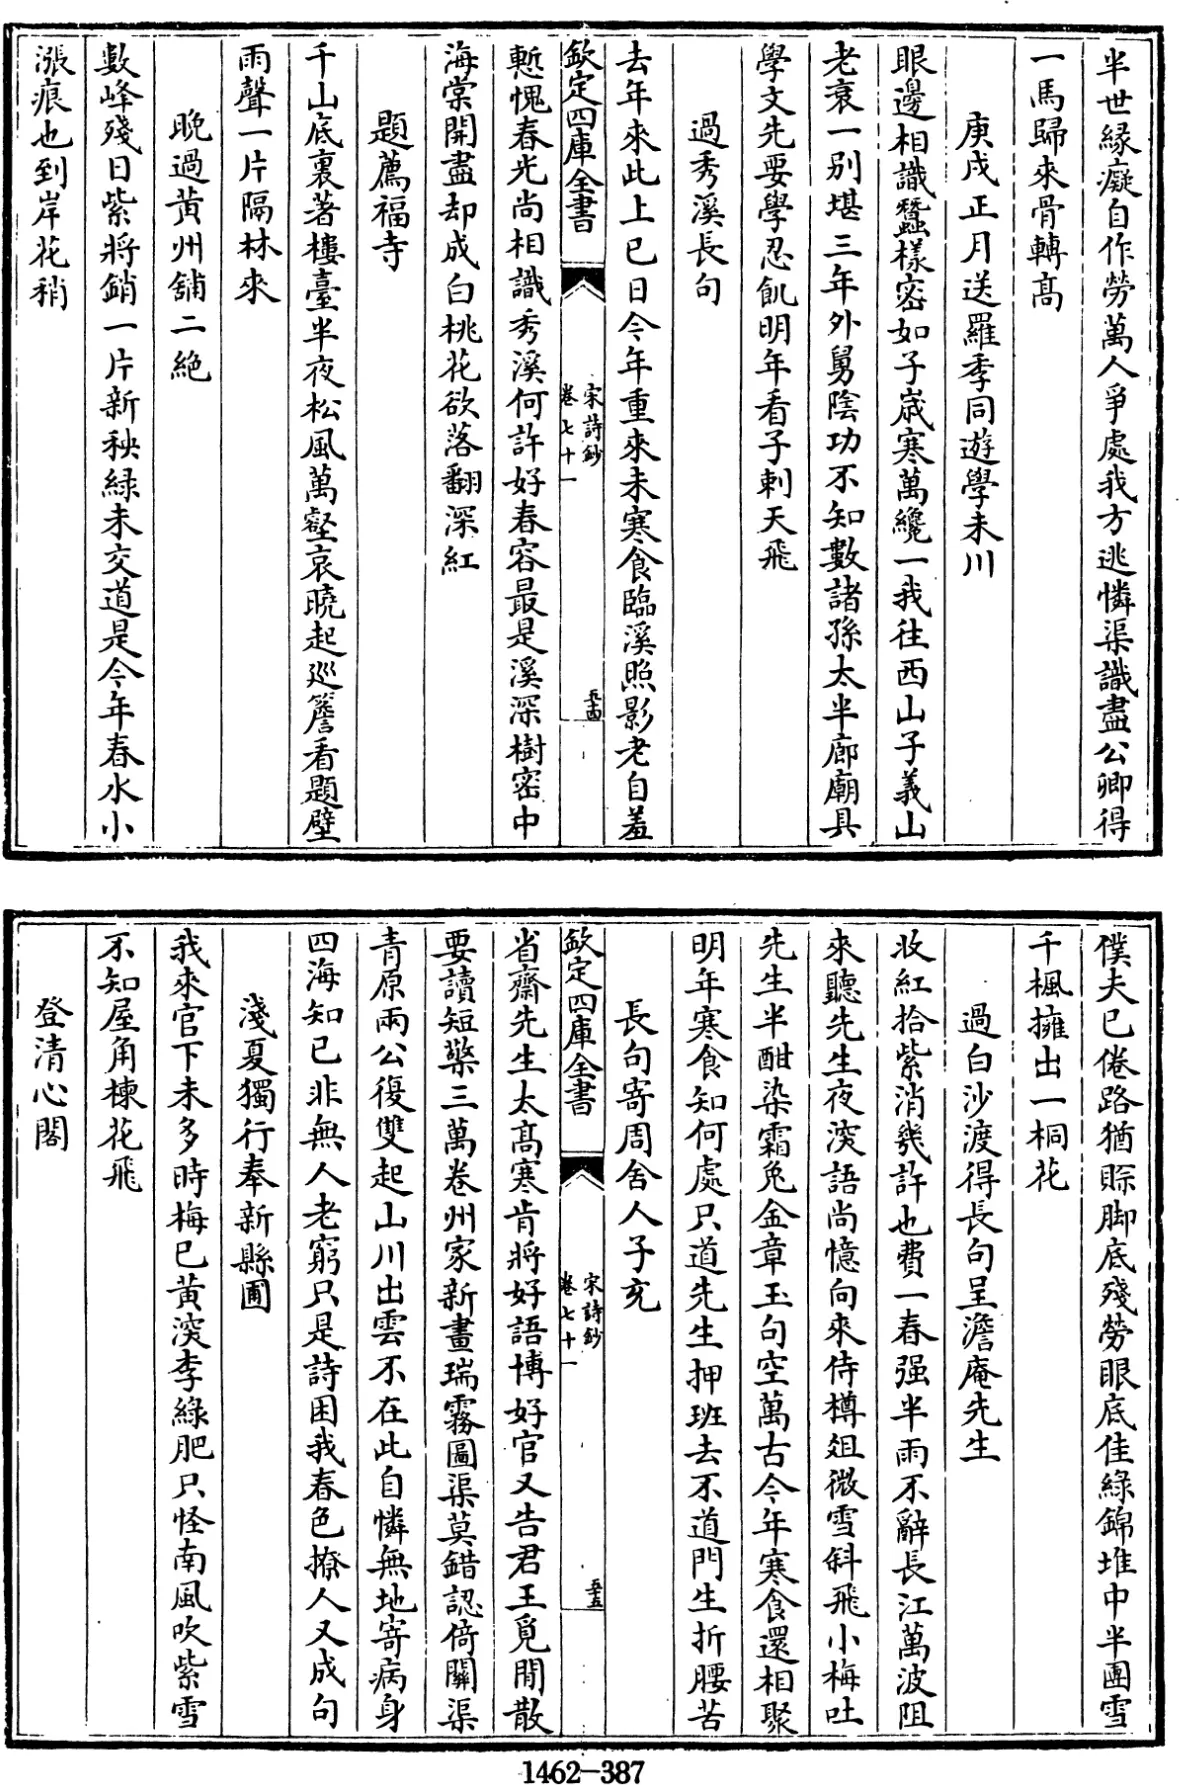 半世緣癡自作勞萬人爭處我方逃憐渠識盡公卿得
一馬歸來骨轉髙
庚戌正月送羅季同遊學未川
眼邊相識蠶樣密如子嵗寒萬纔一我往西山子義山
老衰一别堪三年外舅陰功不知數諸孫太半廊廟具
學文先要學忍飢明年看子刺天飛
過秀溪長句
去年來此上巳日今年重來未寒食臨溪照影老自羞
欽定四庫全書
宋詩鈔
卷七十一
五十四
慙愧春光尚相識秀溪何許好春容最是溪深樹密中
海棠開盡却成白桃花欲落翻深紅
題薦福寺
千山底裏著樓臺半夜松風萬壑哀曉起巡簷看題壁
雨聲一片隔林來
晚過黄州舖二絶
數峰殘日紫將銷一片新秧緑未交道是今年春水小
漲痕也到岸花稍
僕夫已倦路猶賖脚底殘勞眼底佳綠錦堆中半團雪
千楓擁出一桐花
過白沙渡得長句呈澹庵先生
收紅拾紫消幾許也費一春强半雨不辭長江萬波阻
來聽先生夜深語尚憶向來侍樽俎微雪斜飛小梅吐
先生半酣染霜兎金章玉句空萬古今年寒食還相聚
明年寒食知何處只道先生押班去不道門生折腰苦
長句寄周舍人子充
欽定四庫全書
宋詩鈔
卷七十一
五十五
省齋先生太髙寒肯將好語博好官又告君王覓閒散
要讀短檠三萬卷州家新畫瑞霧圖渠莫錯認倚闌渠
青原兩公復雙起山川出雲不在此自憐無地寄病身
四海知已非無人老窮只是詩困我春色撩人又成句
淺夏獨行奉新縣圃
我來官下未多時梅已黄深李緑肥只怪南風吹紫雪
不知屋角楝花飛
登清心閣
1462-387